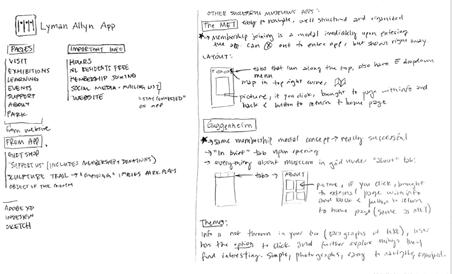 Lyman Allyn App
PAGES
VISIT
EXHIBITIONS
LEARNING
EVENTS
SUPPORT
ABOUT
PARK
from website
IMPORTANT INFO
HOURS
NL RESIDENTS FREE
MEMBERSHIP JOINING
SOCIAL MEDIA + MAILING LIST
WEBSITE
"STAY CONNECTED"
on APP
FROM APP
GIFT SHOP
"SUPPORT US" (INCLUDES MEMBERSHIP & DONATIONS)
SCULPTURE TRAIL
OBJECT OF THE MONTH
ADOBE XD
INVISION
SKETCH
OTHER SUCCESSFUL MUSEUM APPS:
The MET
easy to navigate, well structured and organized
Membership joining is a modal immediately upon entering
the app. Can X out to enter app, but shows right away
LAYOUT:
tabs that run along the top, also have dropdown
menu
map in top right corner
picture, if you click, brought to page with info and
back < button to return to home page
Guggenheim
same membership modal concept → really successful
"In brief" tab upon opening
everything about museum in grid under "about" tab:
tabs
ABOUT
picture, if you click, brought
to external page with info
and back < button to return
to home page (same as MET)
Themes:
Info is not thrown in your face (paragraphs of text), user
has the option to click and further explore things they
find interesting. Simple, photographs, easy to navigate,